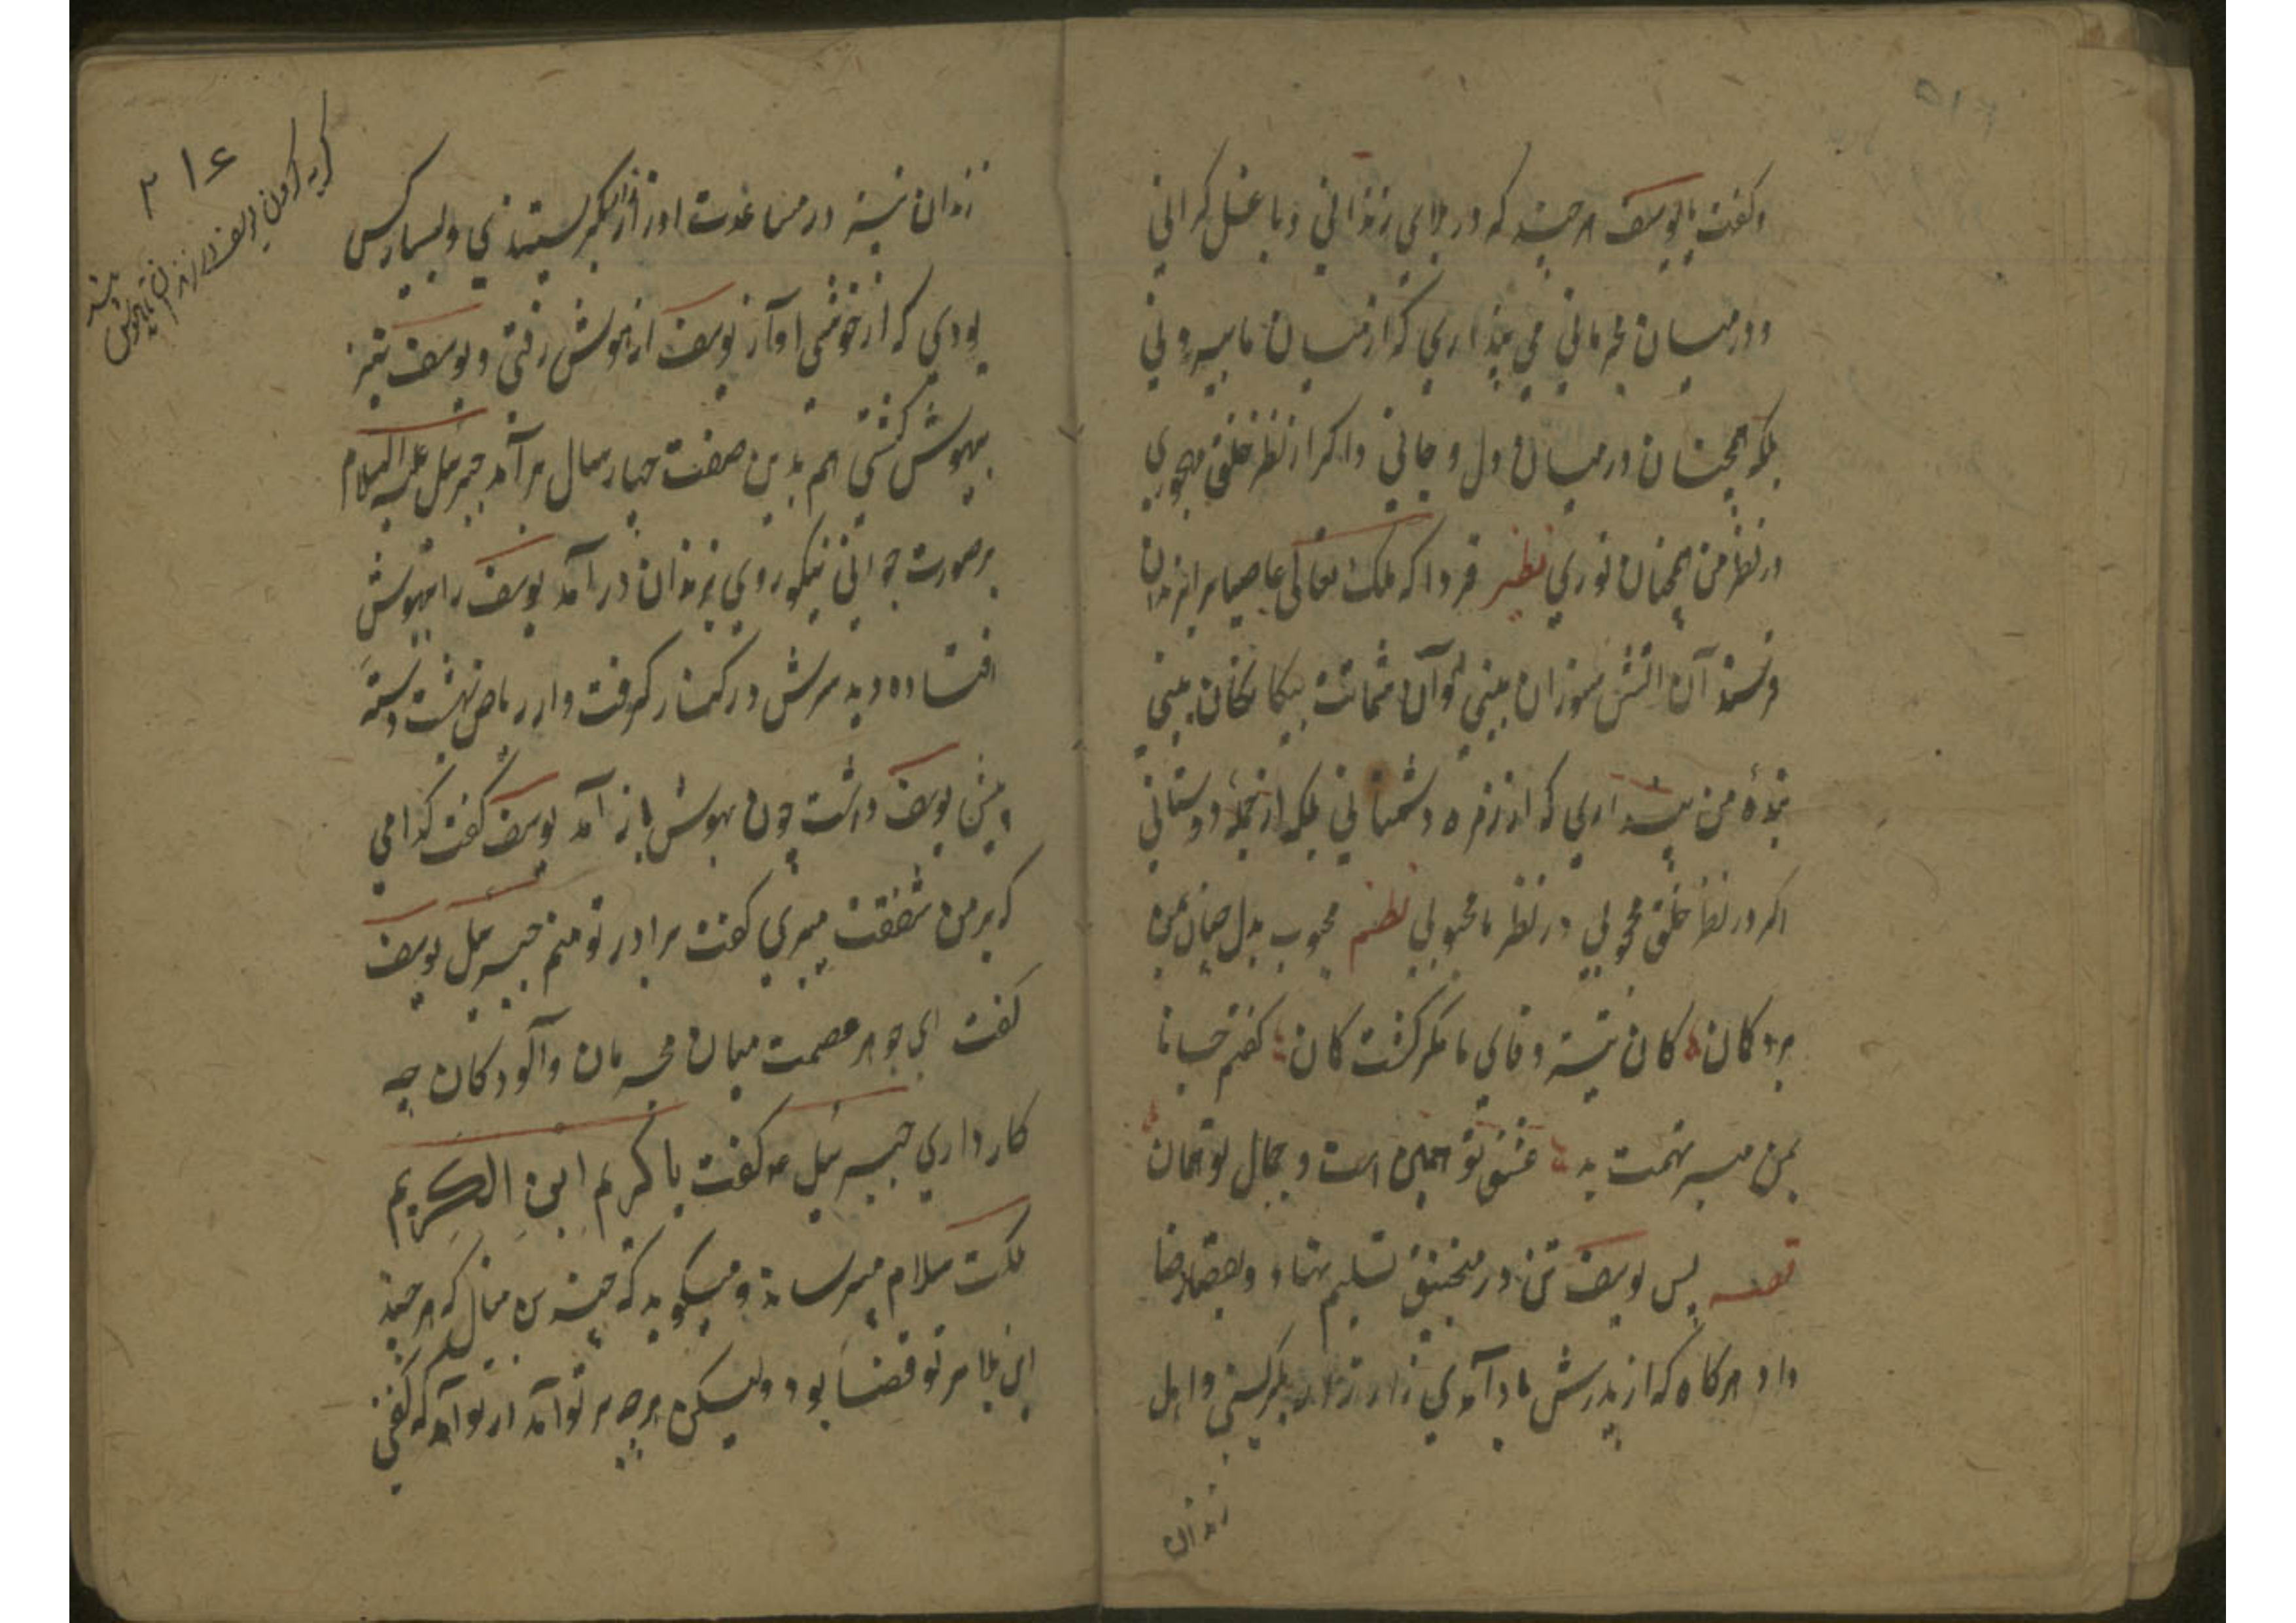 وکفت یا یوسف هر چند که در بلای زندانی و با غل کرانی
و در میان مجرمانی می پنداری که از میان ما بیرونی
بلکه همچنان در میان دل و جانی و اکر از نظر خلق مهجوری
در نظر من همچنان نوری نظیر فردا که ملک تعالی عاصیا برا بزندان
فرستد آن اتش سوزان بینی و آن شماتت بیکانکان بینی
بندهٔ من پنداری که از زمره دشمنانی بلکه از جملهٔ دوستانی
اکر در نظر خلق محجوبی در نظر ما محبوبی نظم محبوب بدل
کان نیست وفای ما مکر کشت کان کفتم
بمن مبر تهمت بد عشق تو همین است و جمال تو همان
قصه پس یوسف تن در منجنیق تسلیم نهاد و بقضا رضا
داد هرکاه که از پدرش یاد آمدی زار زار بکریستی و اهل
زندان
۲۱۶
کریه کردن یوسف در زندان
زندان نیز در مساعدت او زار زار بکریستندی و بسیار کس
بودی که از خوشی اواز یوسف از هوش رفتی و یوسف نیز
بیهوش کشتی هم بدین صفت چهار سال بر آمد جبرئیل علیه السلام
بر صورت جوانی نیکو روی بزندان در آمد یوسف را بیهوش
افتاده دید سرش در کنار کرفت و از ریاض بهشت دسته
پیش یوسف داشت چون بهوش باز آمد یوسف کفت کدامی
که بر من شفقت میبری کفت برادر تو منم جبرئیل یوسف
کفت ای جوهر عصمت میان مجرمان و آلودکان چه
کار داری جبرئیل ع کفت یا کریم ابن الکریم
ملکت سلام میرساند و میکوید که چنین منال که هر چند
این بلا بر تو قضا بود ولیکن هرچه بر تو آمد از تو آمد که کفتی